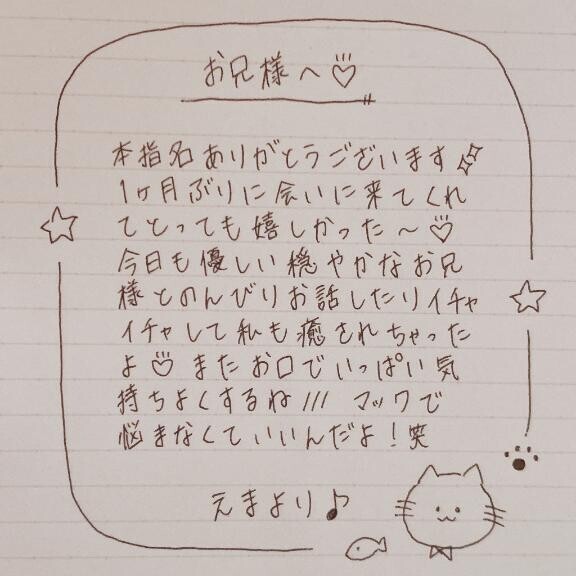 お兄様へ♡
本指名ありがとうございます
1ヶ月ぶりに会いに来てくれ
てとっても嬉しかった〜♡
今日も優しい穏やかなお兄
様とのんびりお話したりイチャ
イチャして私も癒されちゃった
よ♡ またお口でいっぱい気
持ちよくするね/// マックで
悩まなくていいんだよ！笑
えまより♪